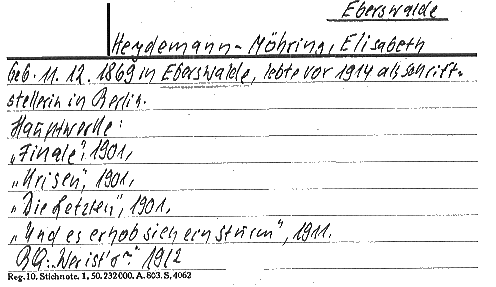 Eberswalde
Heydemann-Möhring, Elisabeth
Geb. 11. 12. 1869 in Eberswalde, lebte vor 1914 als Schrift-
stellerin in Berlin.
Hauptwerke:
„Finale", 1901,
„Krisen", 1901,
„Die Letzten", 1901,
„Und es erhob sich ein Sturm", 1911.
BQ: „Wer ist's?" 1912
Reg. 10. Stichnote. 1, 50. 232000. A. 803. S, 4062